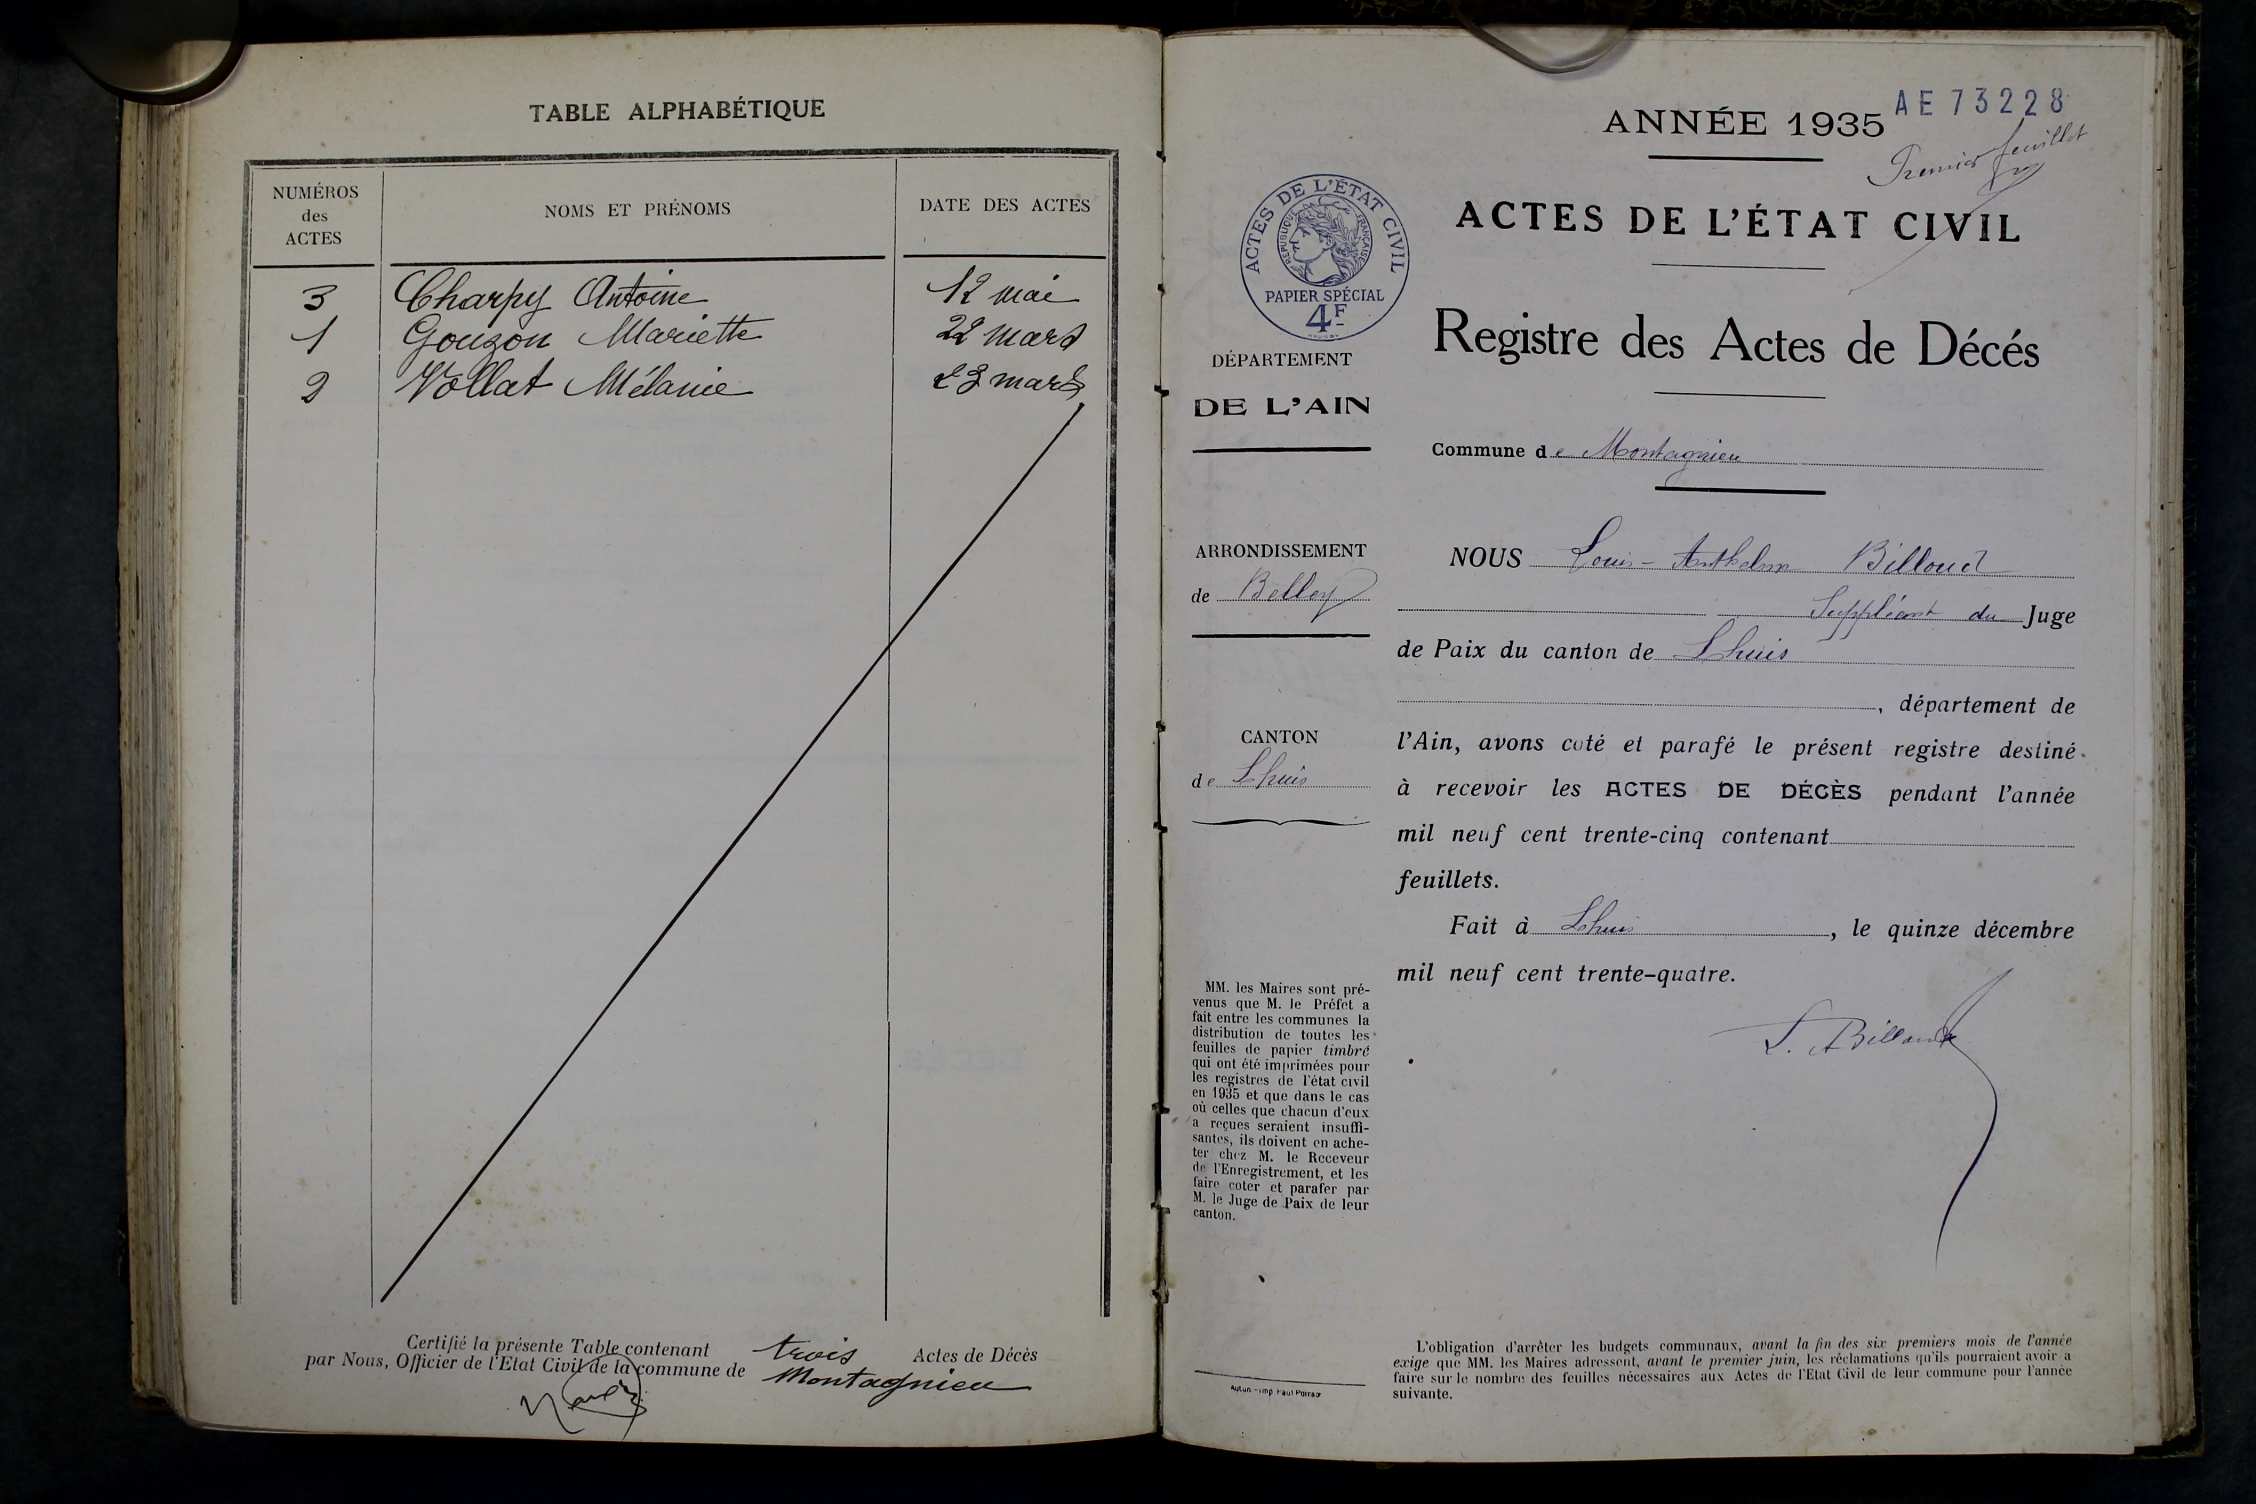 TABLE ALPHABÉTIQUE
NUMÉROS
des
ACTES
NOMS ET PRÉNOMS
DATE DES ACTES
3 Charpy Antoine 12 mai
1 Gouzon Mariette 22 mars
2 Vollat Mélanie 23 mars
Certifié la présente Table contenant trois Actes de Décès
par Nous, Officier de l'Etat Civil de la commune de Montagnieu
ANNÉE 1935
AE 73228
Premier feuillet
ACTES DE L'ÉTAT CIVIL
RÉPUBLIQUE FRANÇAISE
PAPIER SPÉCIAL
4F
ACTES DE L'ÉTAT CIVIL
Registre des Actes de Décés
DÉPARTEMENT
DE L'AIN
Commune de Montagnieu
ARRONDISSEMENT
de Belley
CANTON
de Lhuis
NOUS Louis-Anthelme Billoud
Suppléant du Juge
de Paix du canton de Lhuis
, département de
l'Ain, avons coté et parafé le présent registre destiné
à recevoir les ACTES DE DÉCÈS pendant l'année
mil neuf cent trente-cinq contenant
feuillets.
Fait à Lhuis, le quinze décembre
mil neuf cent trente-quatre.
L. A Billoud
MM. les Maires sont pré-
venus que M. le Préfet a
fait entre les communes la
distribution de toutes les
feuilles de papier timbré
qui ont été imprimées pour
les registres de l'état civil
en 1935 et que dans le cas
où celles que chacun d'eux
a reçues seraient insuffi-
santes, ils doivent en ache-
ter chez M. le Receveur
de l'Enregistrement, et les
faire coter et parafer par
M. le Juge de Paix de leur
canton.
Autun - Imp Paul Poirson
L'obligation d'arrêter les budgets communaux, avant la fin des six premiers mois de l'année
exige que MM. les Maires adressent, avant le premier juin, les réclamations qu'ils pourraient avoir a
faire sur le nombre des feuilles nécessaires aux Actes de l'Etat Civil de leur commune pour l'année
suivante.